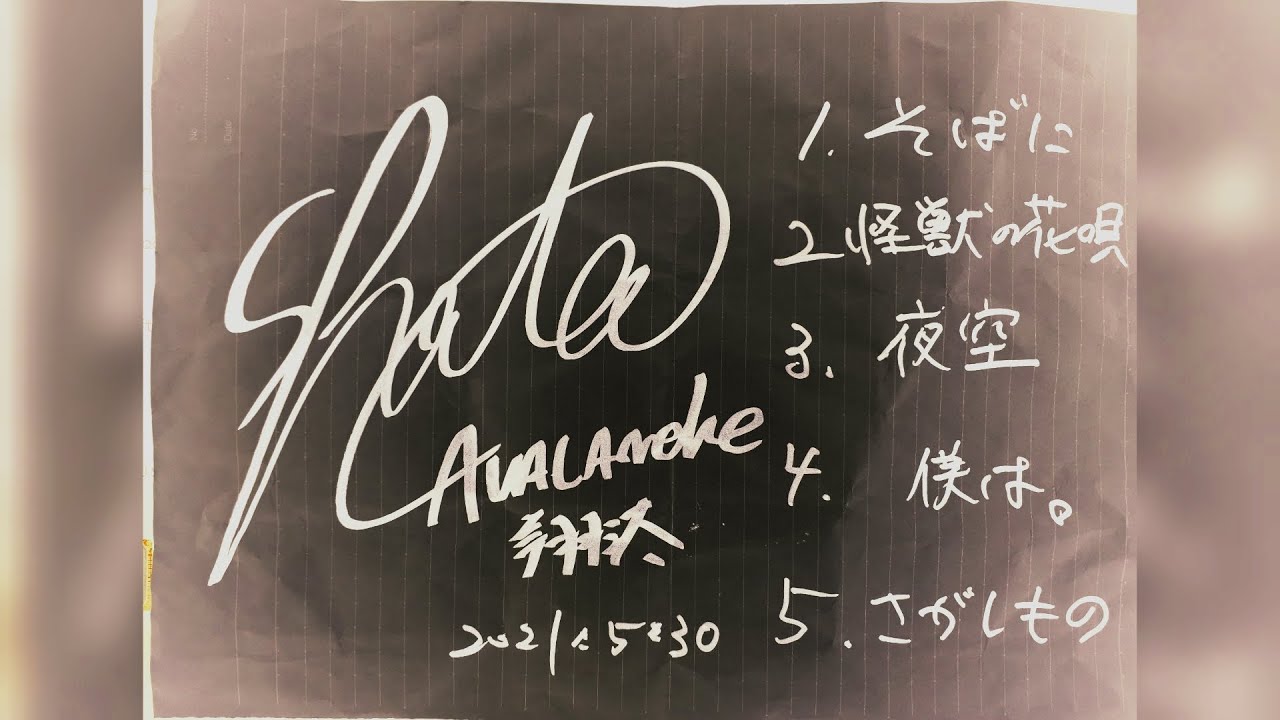 Shota
AVALANche
翔太
2021.5.30
1. そばに
2 怪獣の花唄
3. 夜空
4. 僕は。
5. さがしもの
No
Date